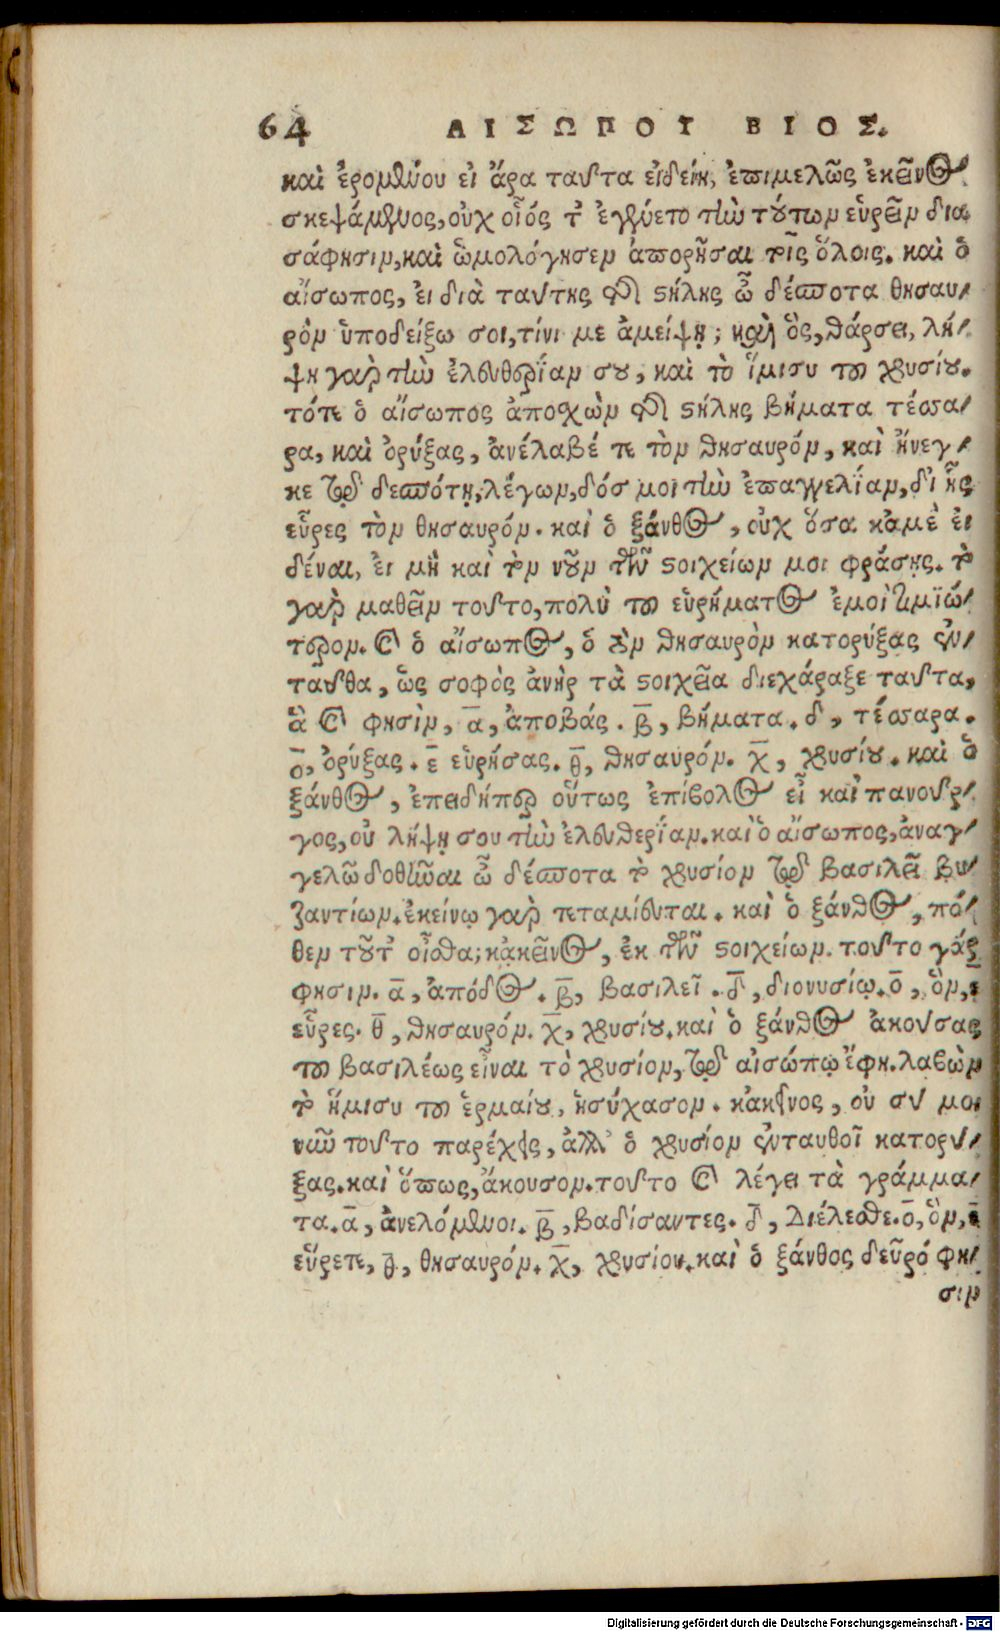 64 ΑΙΣΩΠΟΥ ΒΙΟΣ.
καὶ ἐρομένου εἰ ἄρα ταῦτα εἰδείη, ἐπιμελῶς ἐκεῖνος
σκεψάμενος, οὐχ οἷός τ' ἐγένετο τὴν τούτων εὑρεῖν δια
σάφησιν, καὶ ὡμολόγησεν ἀπορῆσαι τοῖς ὅλοις. καὶ ὁ
αἴσωπος, εἰ διὰ ταύτης τῆς στήλης ὦ δέσποτα θησαυ/
ρὸν ὑποδείξω σοι, τίνι με ἀμείψῃ; καὶ ὃς, θάρσει, λή/
ψη γὰρ τὴν ἐλευθερίαν σου, καὶ τὸ ἥμισυ τοῦ χρυσίου.
τότε ὁ αἴσωπος ἀποσχὼν τῆς στήλης βήματα τέσσα/
ρα, καὶ ὀρύξας, ἀνέλαβέ τε τὸν θησαυρόν, καὶ ἤνεγ/
κε τῷ δεσπότῃ, λέγων, δόσ μοι τὴν ἐπαγγελίαν, δι' ἧς
εὗρες τὸν θησαυρόν. καὶ ὁ ξάνθος, οὐχ ὅσα κἀμὲ εἰ
δέναι, εἰ μὴ καὶ τὸν νοῦν τῶν στοιχείων μοι φράσῃς. τὸ
γὰρ μαθεῖν τοῦτο, πολὺ τοῦ εὑρήματος ἐμοὶ τιμιώ/
τερον. καὶ ὁ αἴσωπος, ὁ τὸν θησαυρὸν κατορύξας ἐν/
ταῦθα, ὡς σοφὸς ἀνὴρ τὰ στοιχεῖα διεχάραξε ταῦτα,
ἃ καὶ φησὶν, α̅, ἀποβάς. β̅, βήματα. δ, τέσσαρα.
ο̅, ὀρύξας. ε̅ εὑρήσας. θ̅, θησαυρόν. χ̅, χρυσίου. καὶ ὁ
ξάνθος, ἐπειδήπερ οὕτως ἐπίβολος εἶ καὶ πανοῦρ/
γος, οὐ λήψῃ σου τὴν ἐλευθερίαν. καὶ ὁ αἴσωπος, ἀναγ/
γελῶ δοθῆναι ὦ δέσποτα τὸ χρυσίον τῷ βασιλεῖ βυ/
ζαντίων. ἐκείνῳ γὰρ τεταμίευται. καὶ ὁ ξάνθος, πό/
θεν τοῦτ' οἶσθα; κἀκεῖνος, ἐκ τῶν στοιχείων. τοῦτο γάρ
φησιν. α̅, ἀπόδος. β̅, βασιλεῖ. δ̅, διονυσίῳ. ο̅, ὃν, ε̅
εὗρες. θ̅, θησαυρόν. χ̅, χρυσίου. καὶ ὁ ξάνθος ἀκούσας
τοῦ βασιλέως εἶναι τὸ χρυσίον, τῷ αἰσώπῳ ἔφη. λαβὼν
τὸ ἥμισυ τοῦ ἑρμαίου, ἡσύχασον. κἀκεῖνος, οὐ σύ μοι
νῦν τοῦτο παρέχεις, ἀλλ' ὁ χρυσίον ἐνταυθοῖ κατορύ/
ξας. καὶ ὅπως, ἄκουσον. τοῦτο καὶ λέγει τὰ γράμμα/
τα. α̅, ἀνελόμενοι. β̅, βαδίσαντες. δ̅, διέλεσθε. ο̅, ὃν, ε̅
εὕρετε, θ̅, θησαυρόν. χ̅, χρυσίου. καὶ ὁ ξάνθος δεῦρό φη/
σιν
Digitalisierung gefördert durch die Deutsche Forschungsgemeinschaft - DFG